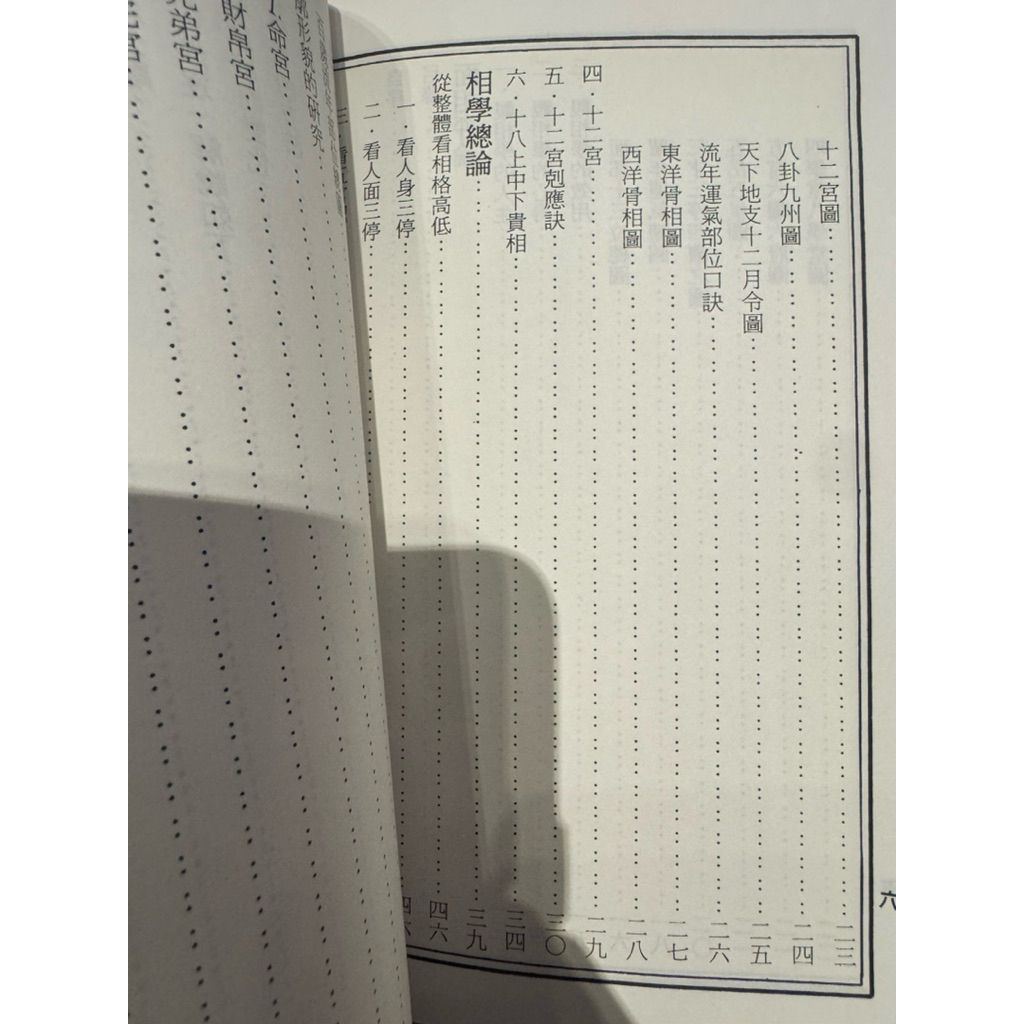 十二宮圖⋯⋯二三
八卦九州圖⋯⋯二四
天下地支十二月令圖⋯⋯二五
流年運氣部位口訣⋯⋯二六
東洋骨相圖⋯⋯二七
西洋骨相圖⋯⋯二八
四．十二宮⋯⋯二九
五．十二宮剋應訣⋯⋯三〇
六．十八上中下貴相⋯⋯三四
相學總論⋯⋯三九
從整體看相格高低⋯⋯四六
一．看人身三停⋯⋯四六
二．看人面三停⋯⋯
形貌的研究⋯⋯
1.命宮⋯⋯
財帛宮⋯⋯
兄弟宮⋯⋯
六